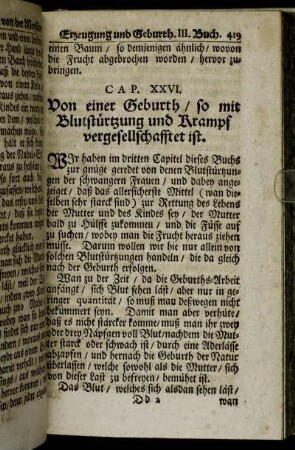 Erzeugung und Geburth. III. Buch. 419
einen Baum / so demjenigen ähnlich / wovon
die Frucht abgebrochen worden / hervor zu-
bringen.
CAP. XXVI.
Von einer Geburth / so mit
Blutstürtzung und Krampf
vergesellschafftet ist.
WIr haben im dritten Capitel dieses Buchs
zur gnüge geredet von denen Blutstürtzun-
gen der schwangern Frauen / und dabey ange-
zeiget / daß das allersicherste Mittel (wan die-
selben sehr starck sind) zur Rettung des Lebens
der Mutter und des Kindes sey / der Mutter
bald zu Hülffe zukommen / und die Füsse auf
zu suchen / wobey man die Frucht heraus ziehen
müsse. Darum wollen wir hie nur allein von
solchen Blutstürtzungen handeln / die da gleich
nach der Geburth erfolgen.
Wan zu der Zeit / da die Geburths-Arbeit
anfängt / sich Blut sehen läst / aber nur in ge-
ringer quantität / so muß man deßwegen nicht
bekümmert seyn. Damit man aber verhüte /
daß es nicht stärcker komme / muß man ihr zwey
oder drey Näpfgen voll Blut / nachdem die Mut-
ter starck oder schwach ist / durch eine Aderlässe
abzapfen / und hernach die Geburth der Natur
überlassen / welche sowohl als die Mutter / sich
von dieser Last zu befreyen / bemühet ist.
Das Blut / welches sich alsdan sehen läst /
Dd 2 wan